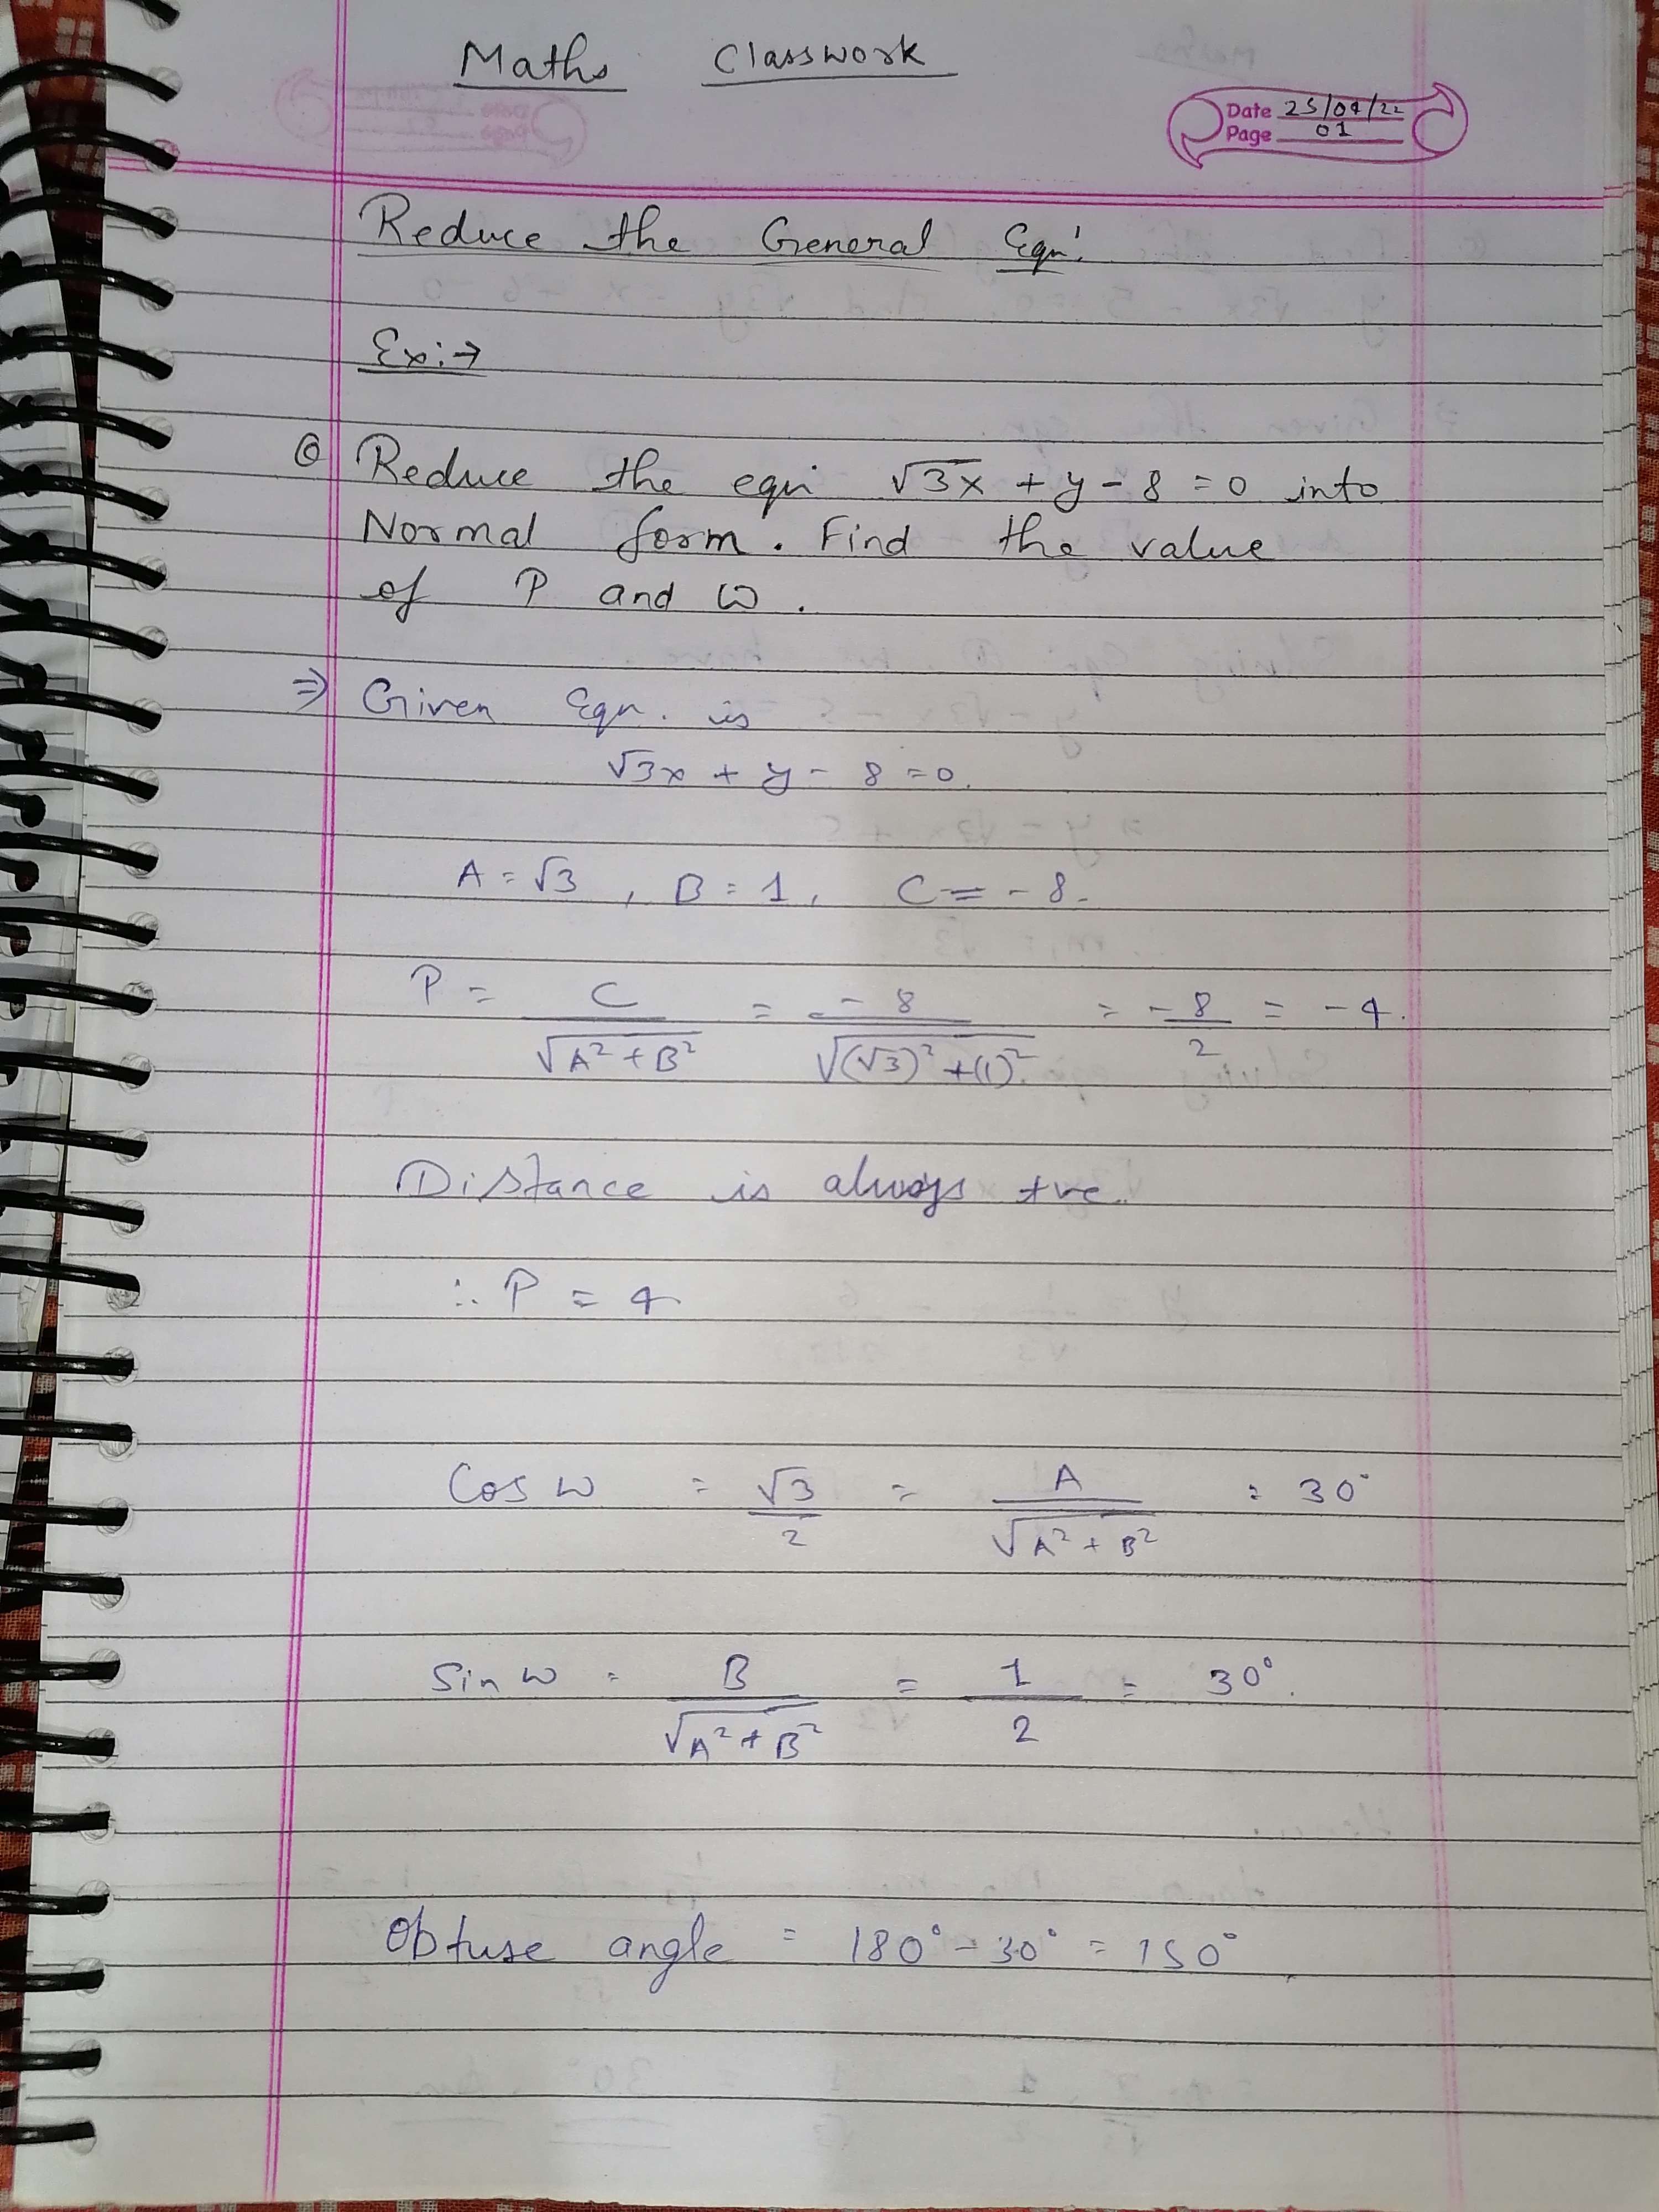 Maths Classwork
Date 25/04/22
Page 01
Reduce the General Eqn.
Ex:→
Q Reduce the eqn √3x + y - 8 = 0 into
Normal form. Find the value
of P and ω.
⇒ Given Eqn. is
√3x + y - 8 = 0.
A = √3 , B = 1, C = - 8.
P = C/√A² + B² = - 8/√(√3)² + (1)² = - 8/2 = - 4.
Distance is always +ve.
∴ P = 4
Cos ω = √3/2 = A/√A² + B² = 30°
Sin ω = B/√A² + B² = 1/2 = 30°.
Obtuse angle = 180° - 30° = 150°